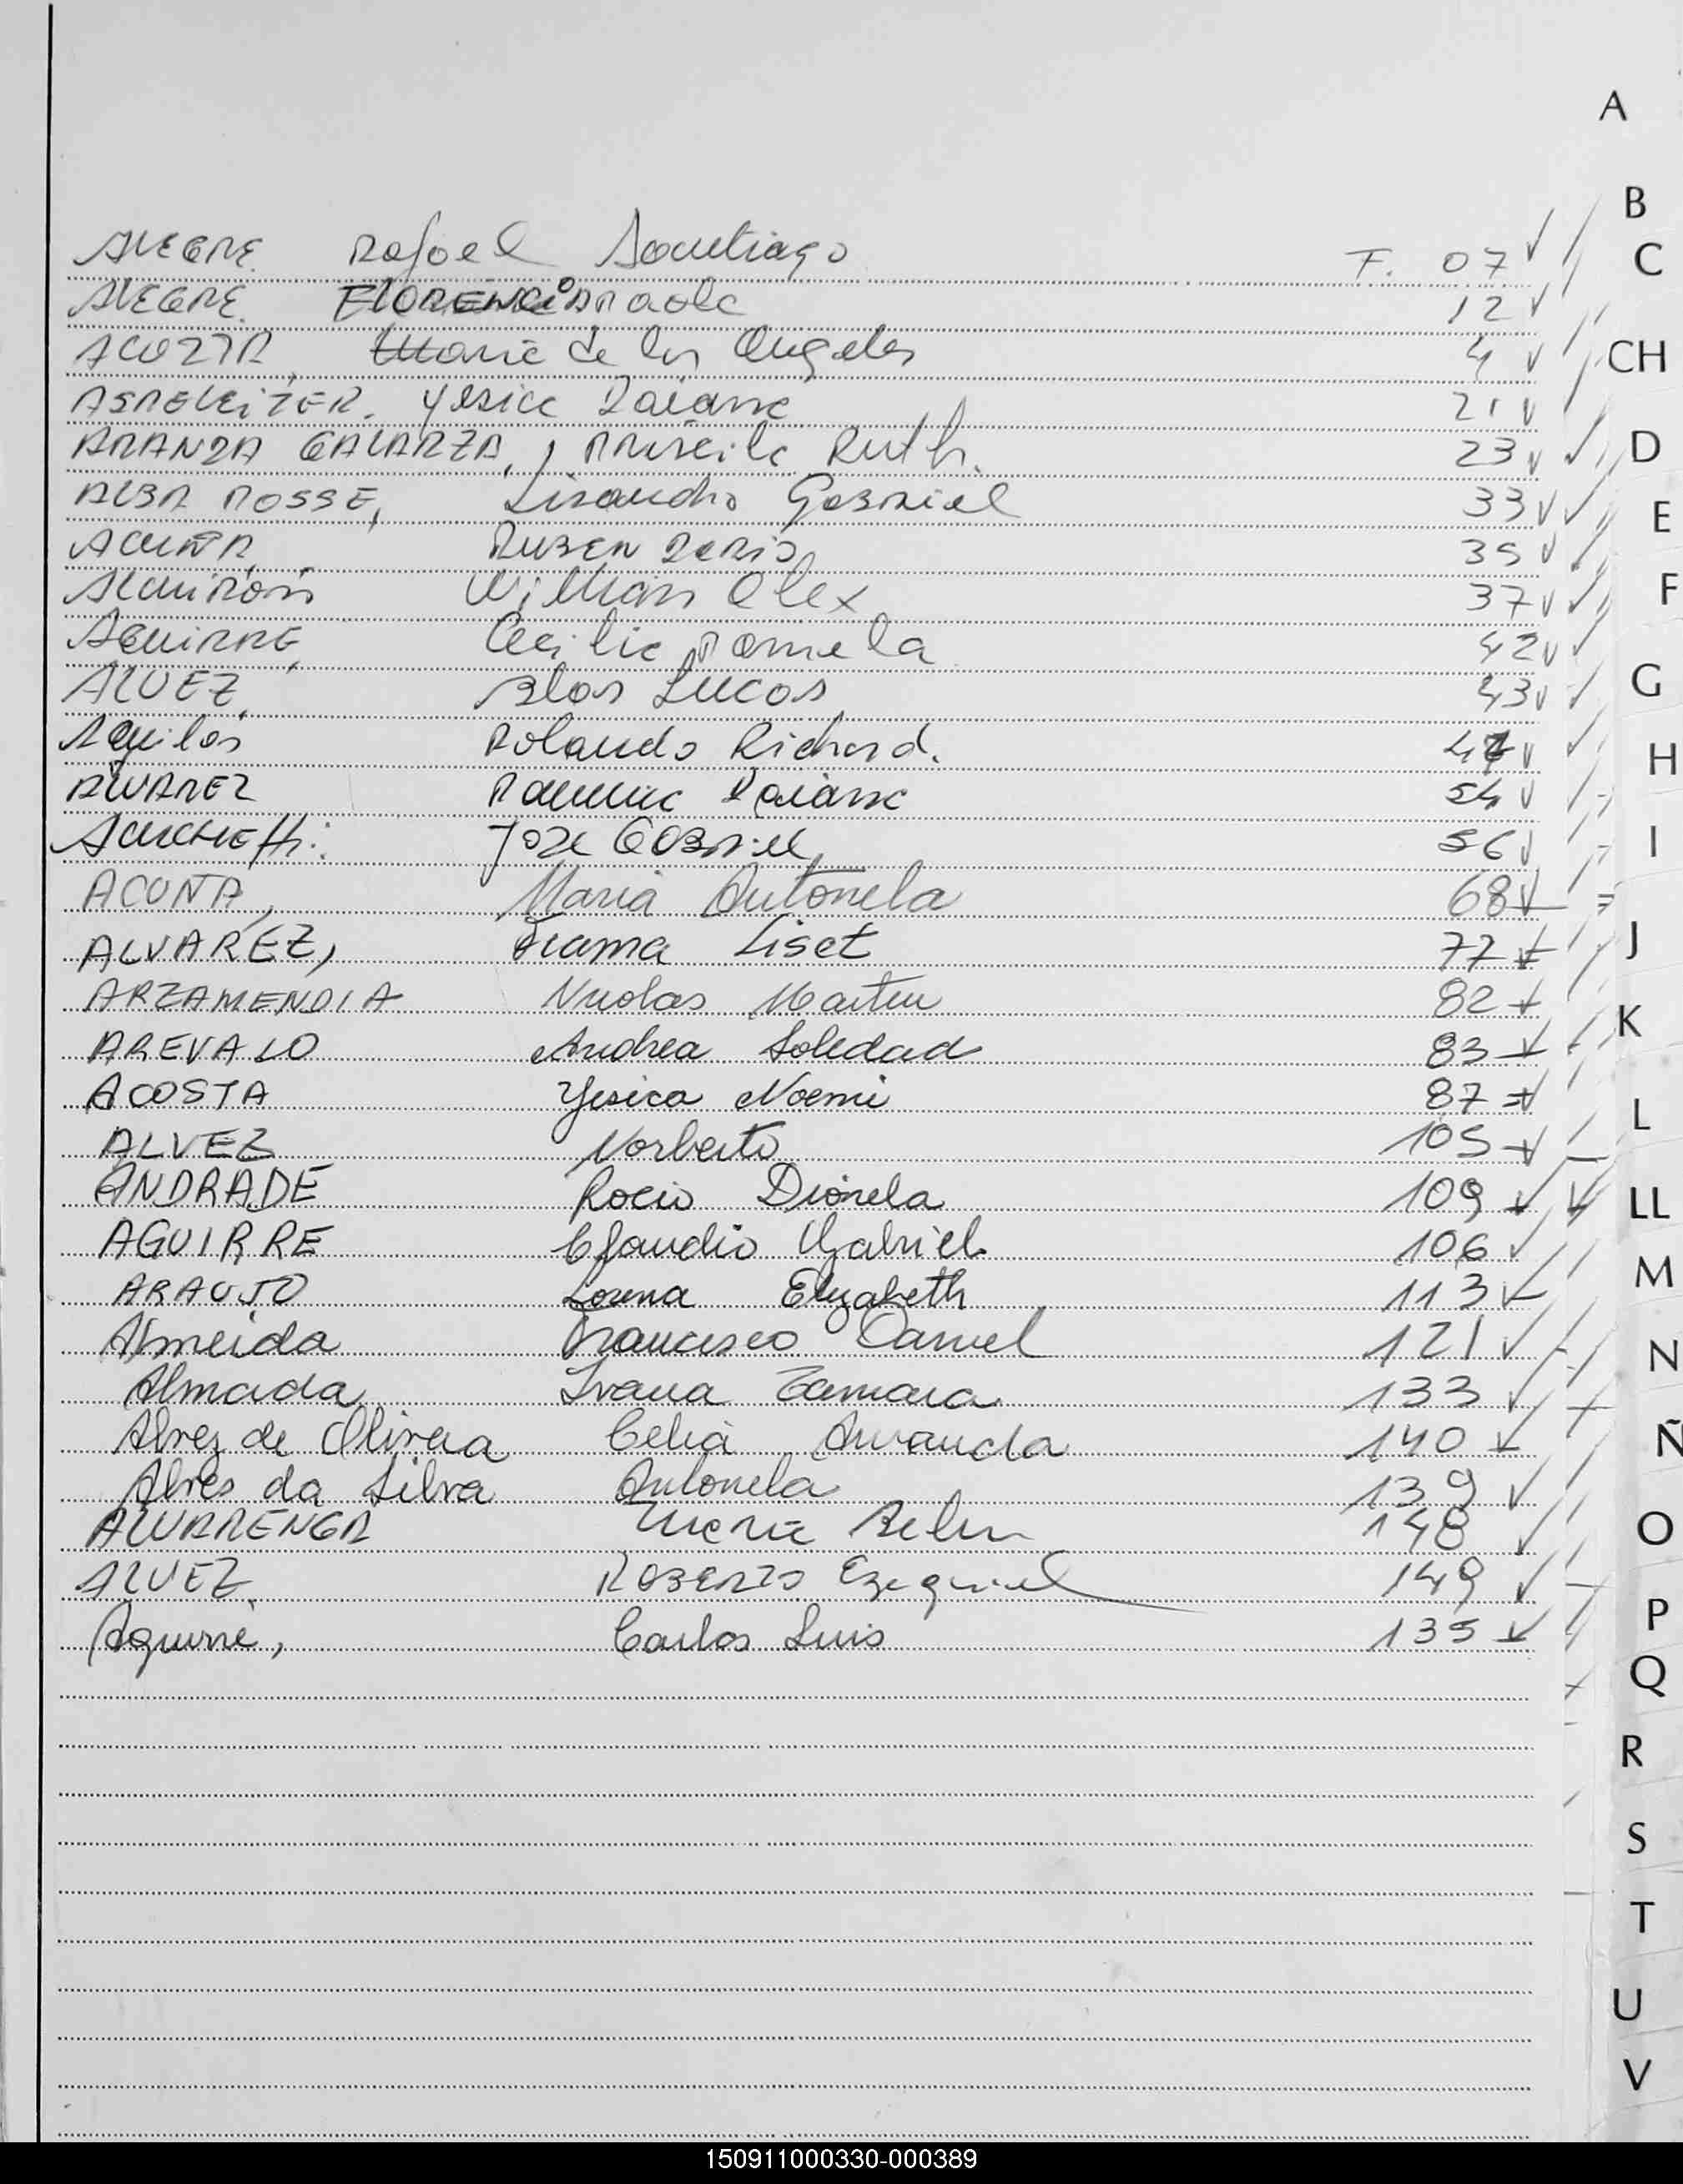 ALEGRE Rafael Santiago F. 07
ALEGRE FLORENCIA Paola 12
ACOSTA, Maria de los Angeles 4
ASRELEITER. Yesica Daiane 21
ARANDA GALARZA, Priscila Ruth. 23
ALBA POSSE, Lisandro Gabriel 33
ACUÑA, RUBEN DARIO 35
Almirón Willian Alex 37
AGUIRRE, Cecilia Pamela 42
ALVEZ. Blas Lucas 43
Aguilar Rolando Richard.
ALVAREZ Daiane 54
José GABRIEL 56
ACUÑA, Maria Antonela 68
ALVAREZ, Fiama Liset 77
ARZAMENDIA Nicolas Martin 82
AREVALO Andrea Soledad 83
ACOSTA Yesica Noemi 87
ALVEZ Norberto 105
ANDRADE Rocio Dionela 109
AGUIRRE Claudio Gabriel 106
ARAUJO Lorena Elizabeth 113
Almeida Francisco Daniel 121
Almada Ivana Tamara 133
Alvez de Olivera Celia Amanda 140
Alves da Silva Antonela 139
ALVARENGA Maria Belen 148
ALVEZ. ROBERTO Ezequiel 149
Aguirre, Carlos Luis 135
A
B
C
CH
D
E
F
G
H
I
J
K
L
LL
M
N
Ñ
O
P
Q
R
S
T
U
V
150911000330-000389